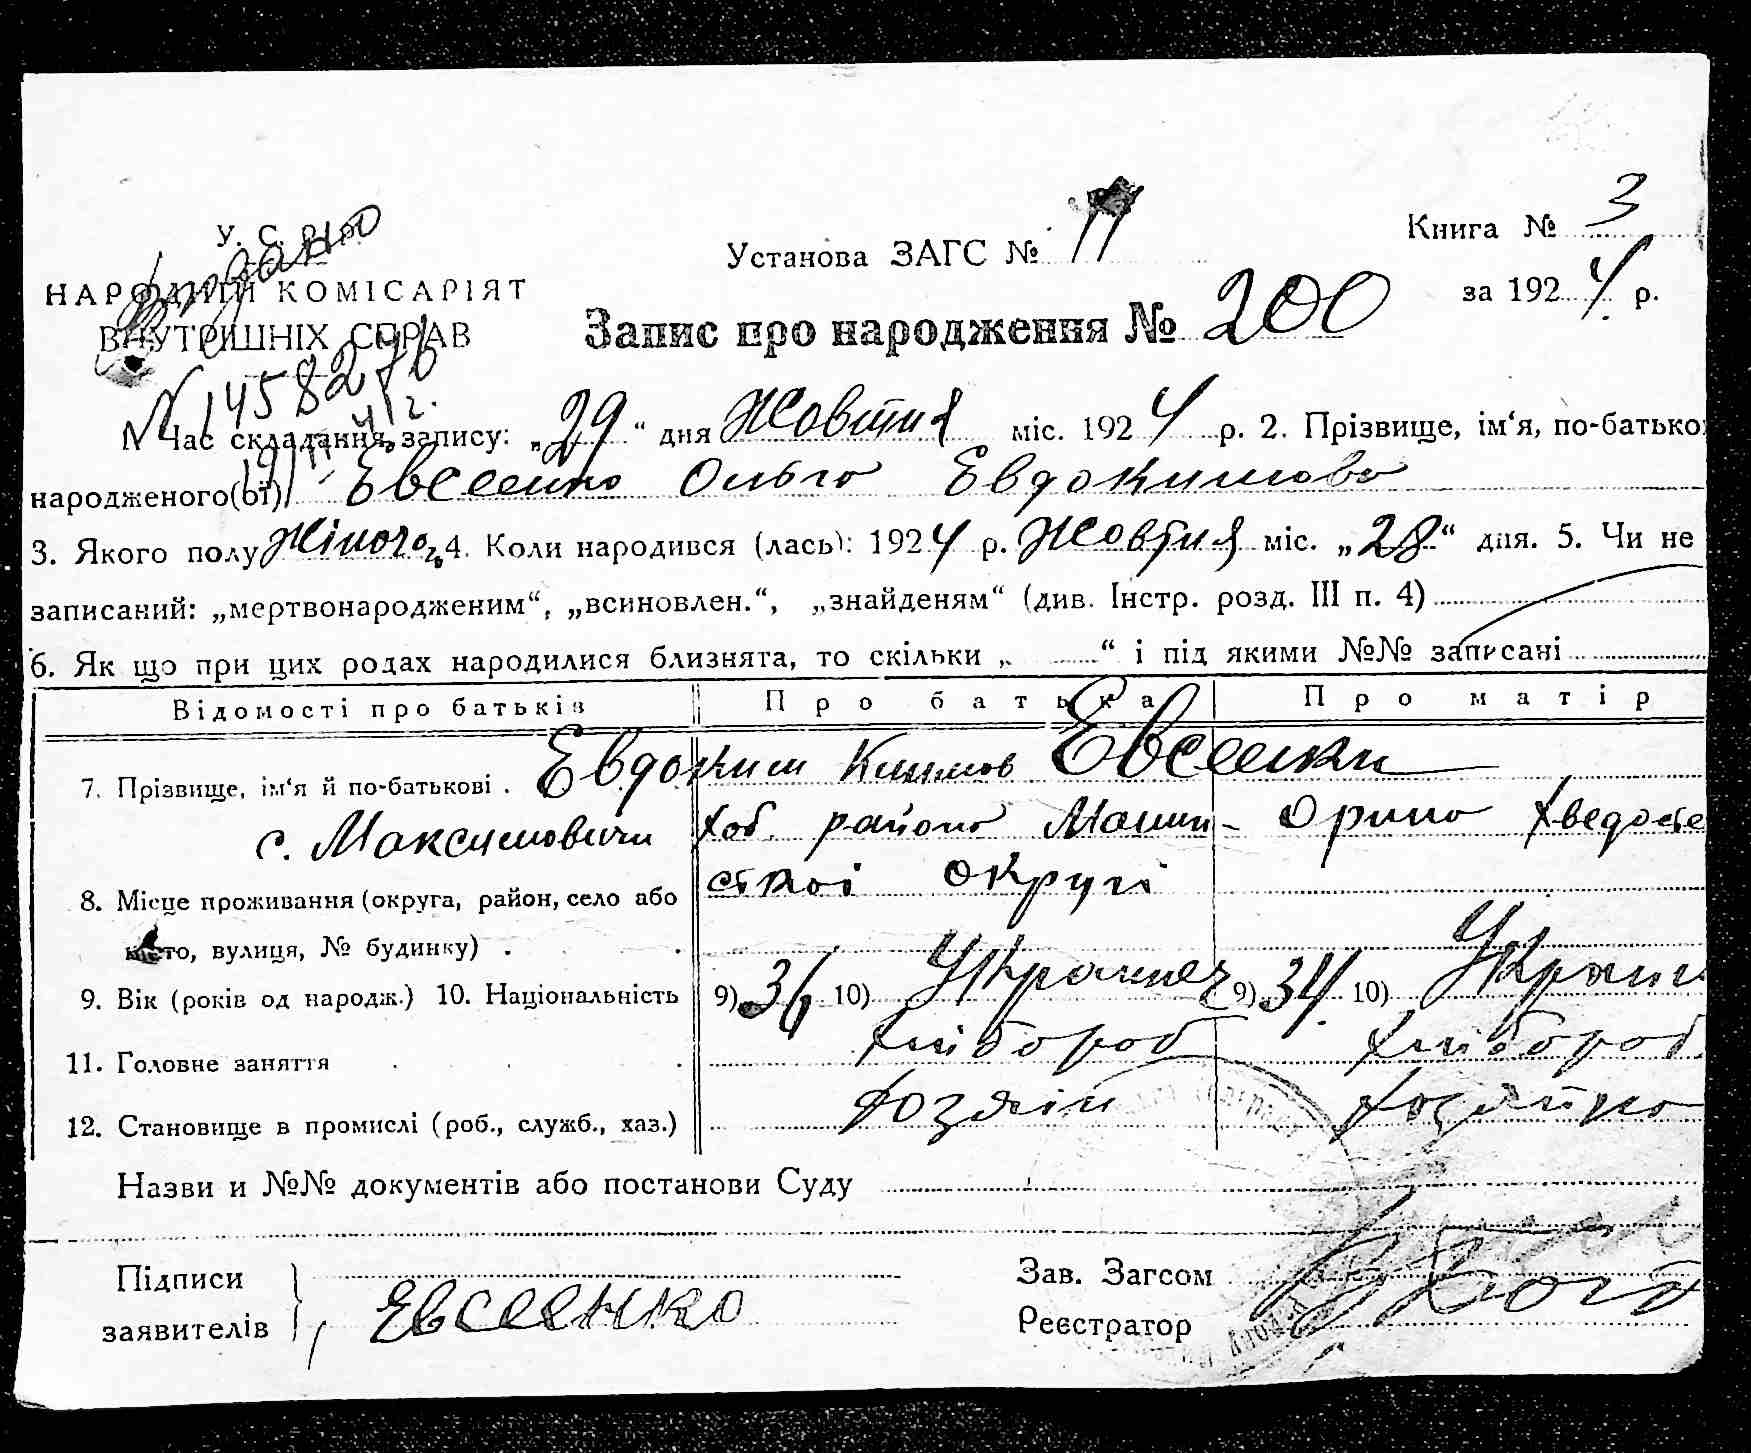 У. С. Р. Р.
НАРОДНИЙ КОМІСАРІЯТ
ВНУТРІШНІХ СПРАВ
Установа ЗАГС № 11
Книга № 3
за 1924 р.
Запис про народження № 200
Видано
N 1458276
1. Час складання запису: „29“ дня Жовтня міс. 1924 р. 2. Прізвище, ім‘я, по-батько
народженого(ої) Евсеенко Ольга Евдокимова
3. Якого полу Жіночо 4. Коли народився (лась): 1924 р. Жовтня міс. „28“ дня. 5. Чи не
записаний: „мертвонародженим“, „всиновлен.“, „знайденям“ (див. Інстр. розд. III п. 4)
6. Як що при цих родах народилися близнята, то скільки „ “ і під якими №№ записані
Відомості про батьків Про батька Про матір
7. Прізвище, ім‘я й по-батькові . Евдоким Климов Евсеенки
с. Максимовичи Хаб. района Малин- Орина Хведосе
ськоі округі
8. Місце проживання (округа, район, село або
місто, вулиця, № будинку) .
9. Вік (років од народж.) 10. Національність 9) 36 10) Украинец 9) 34 10) Украин
11. Головне заняття Хлібороб Хлібороб
12. Становище в промислі (роб., служб., хаз.) Хозяін Хозяйка
Назви и №№ документів або постанови Суду
Підписи
заявителів
Евсеенко
Зав. Загсом
Реєстратор